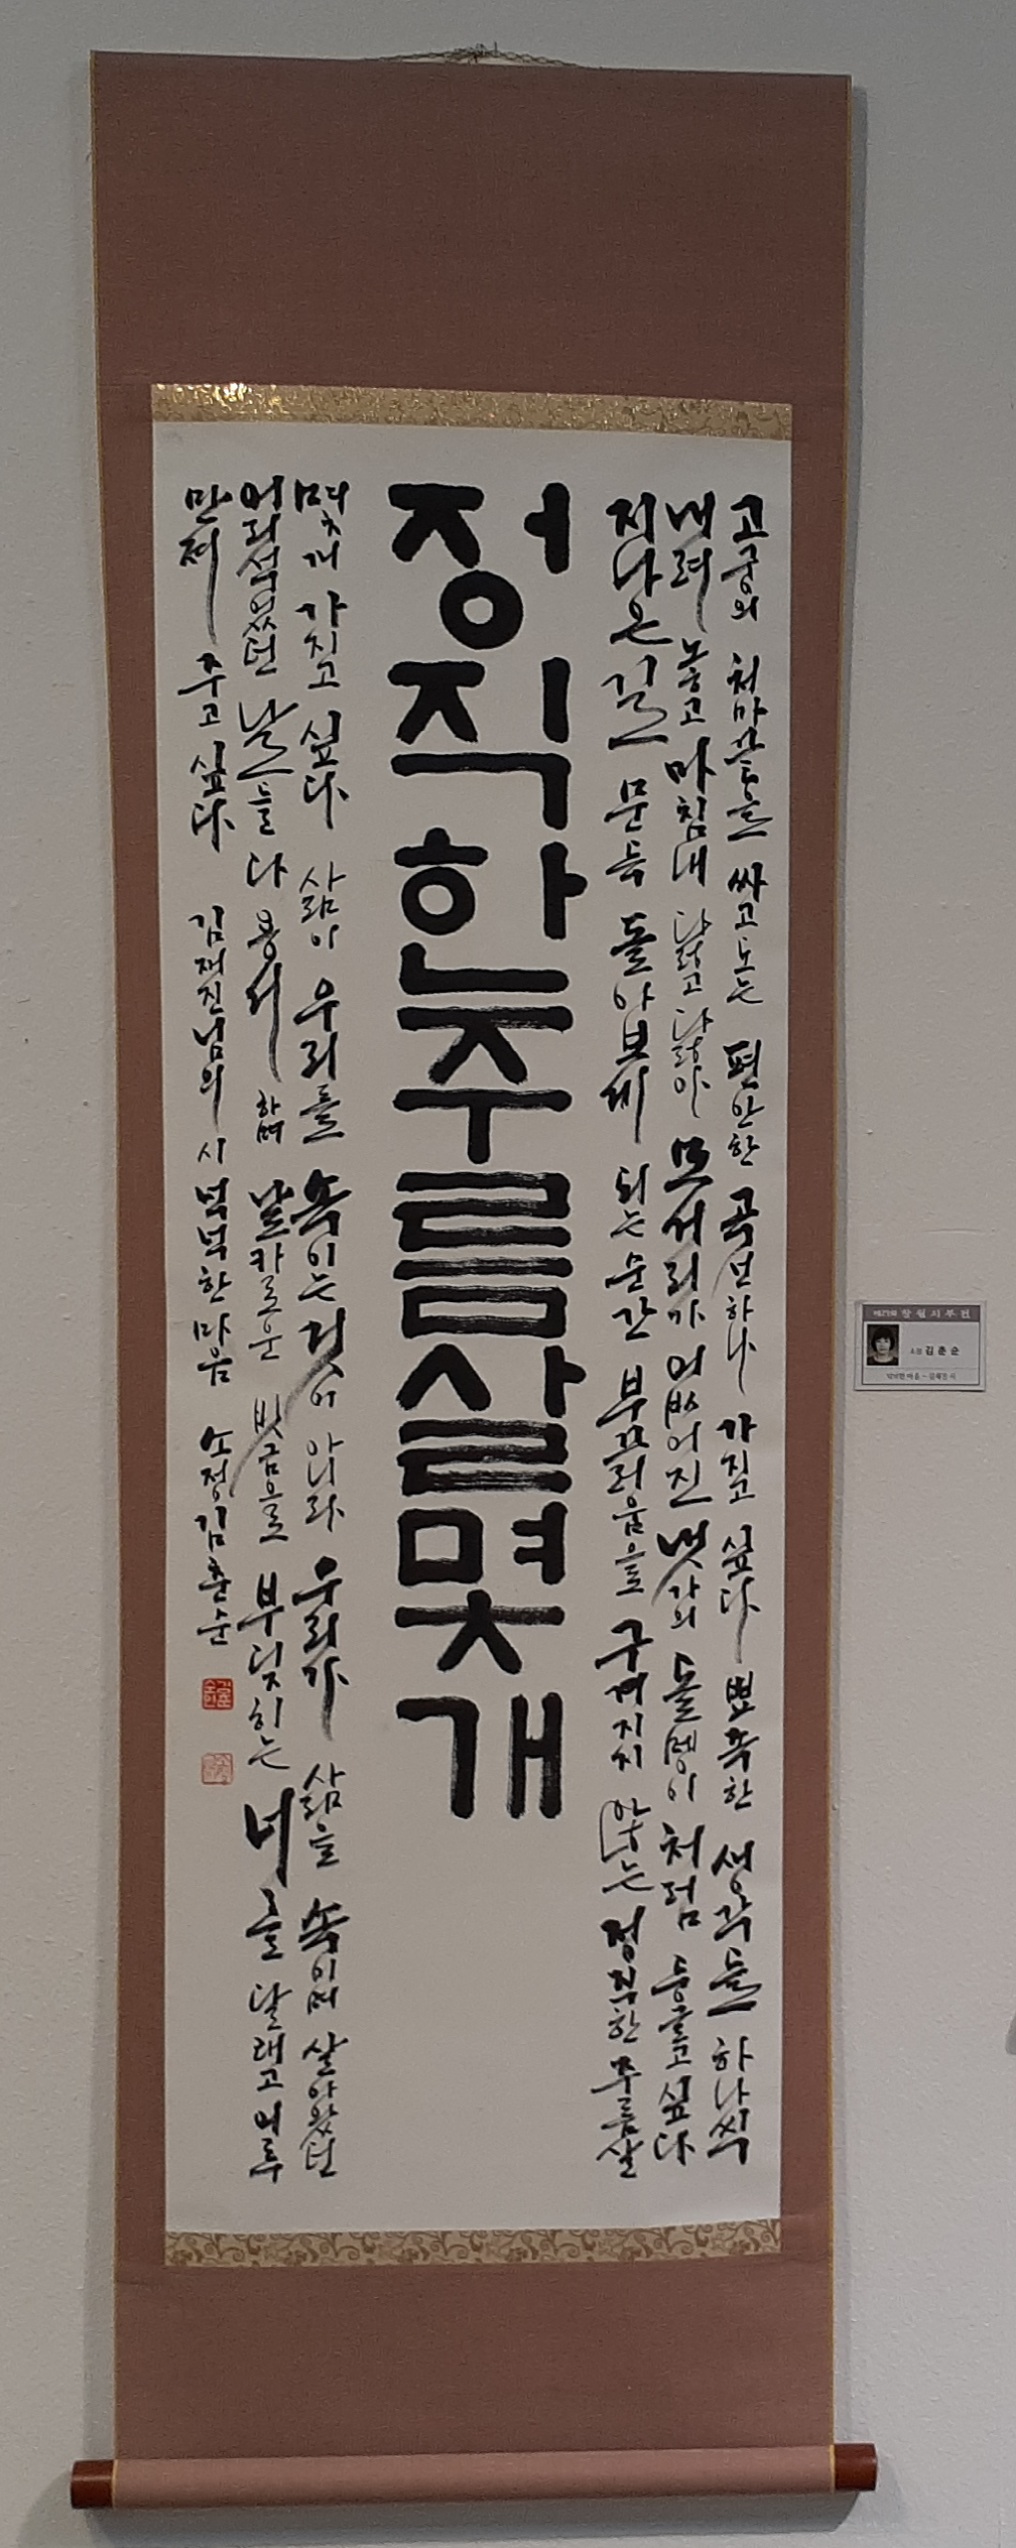 고궁의 처마끝을 싸고도는 편안한 곡선하나 가지고 싶다 뾰족한 생각들 하나씩
내려 놓고 마침내 닳고 닳아 모서리가 없어진 냇가의 돌멩이 처럼 둥글고 싶다
지나온 길 문득 돌아보게 되는 순간 부끄러움으로 구겨지지 않는 정직한 주름살
정직한주름살몇개
몇개 가지고 싶다 삶이 우리를 속이는 것이 아니라 우리가 삶을 속이며 살아왔던
어리석었던 날들 다 용서하며 날카로운 빗금으로 부딪히는 너를 달래고 어루
만져 주고 싶다 김재진님의 시 넉넉한 마음 소정 김춘순
소정 김춘순
넉넉한 마음 - 김재진 시